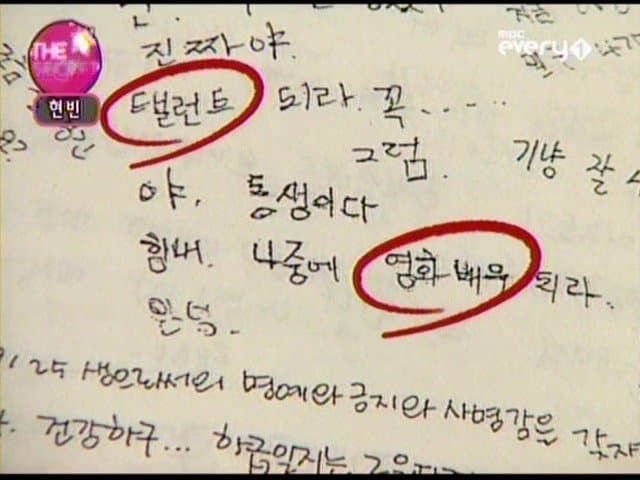 THE
SECRET
현빈
mbc
every1
진짜야.
탤런트 되라. 꼭.....
그럼. 기냥 잘
야. 동생이다
힘내. 나중에 영화배우 되라.
25 생으로서의 명예와 긍지와 사명감을 갖자
건강하구... 학급일지는